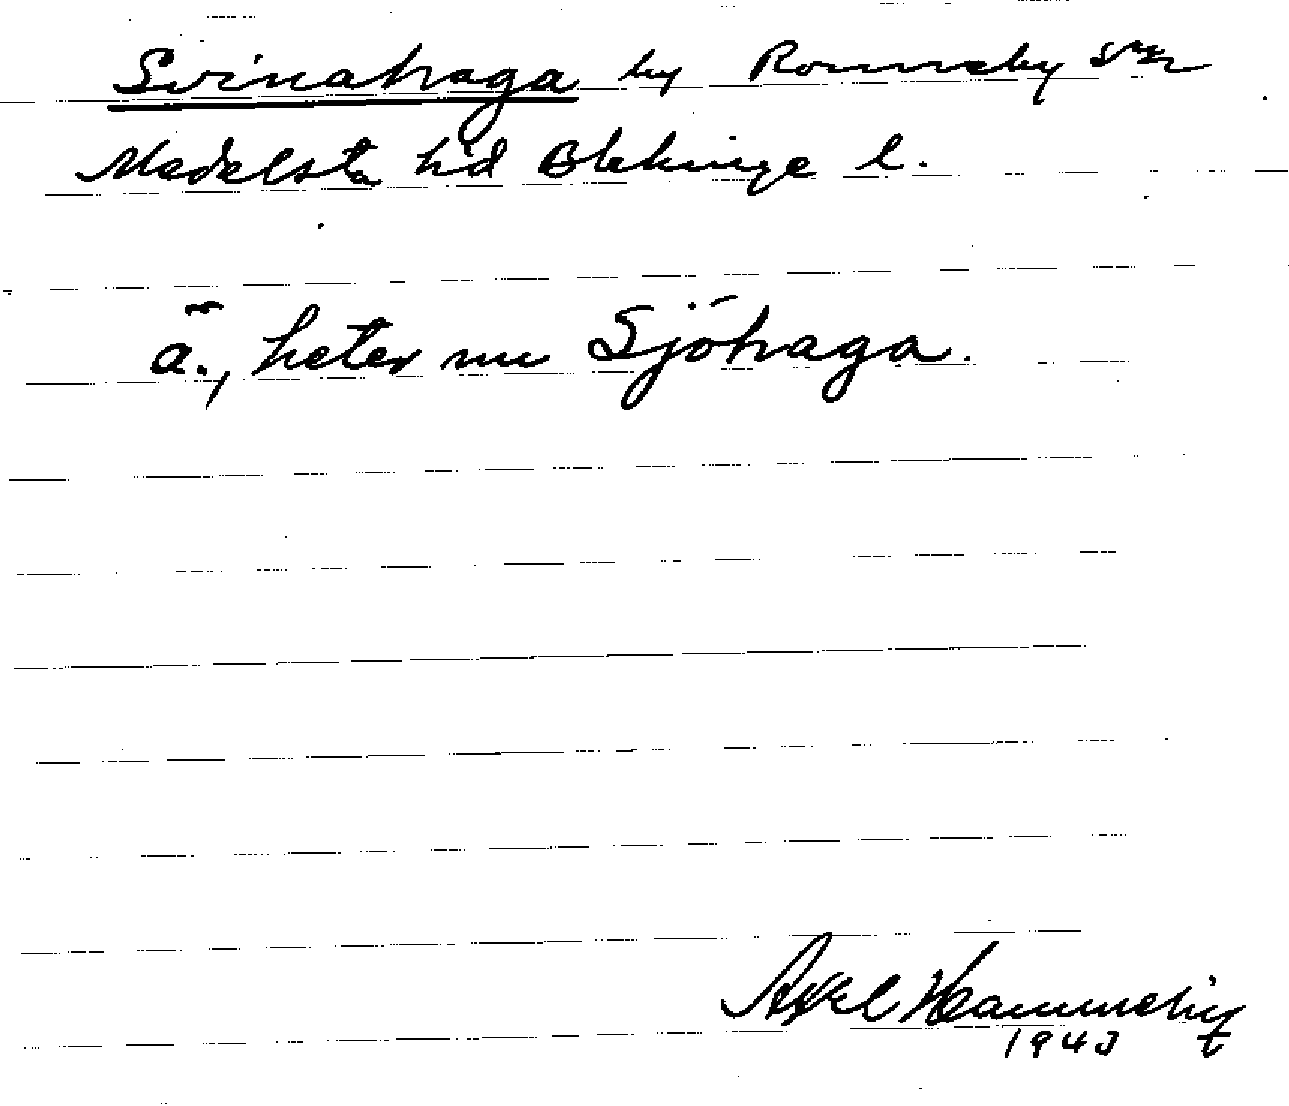 Svinahaga by Ronneby sn
Medelsta hd Blekinge l.
ä., heter nu Sjöhaga.
Axel